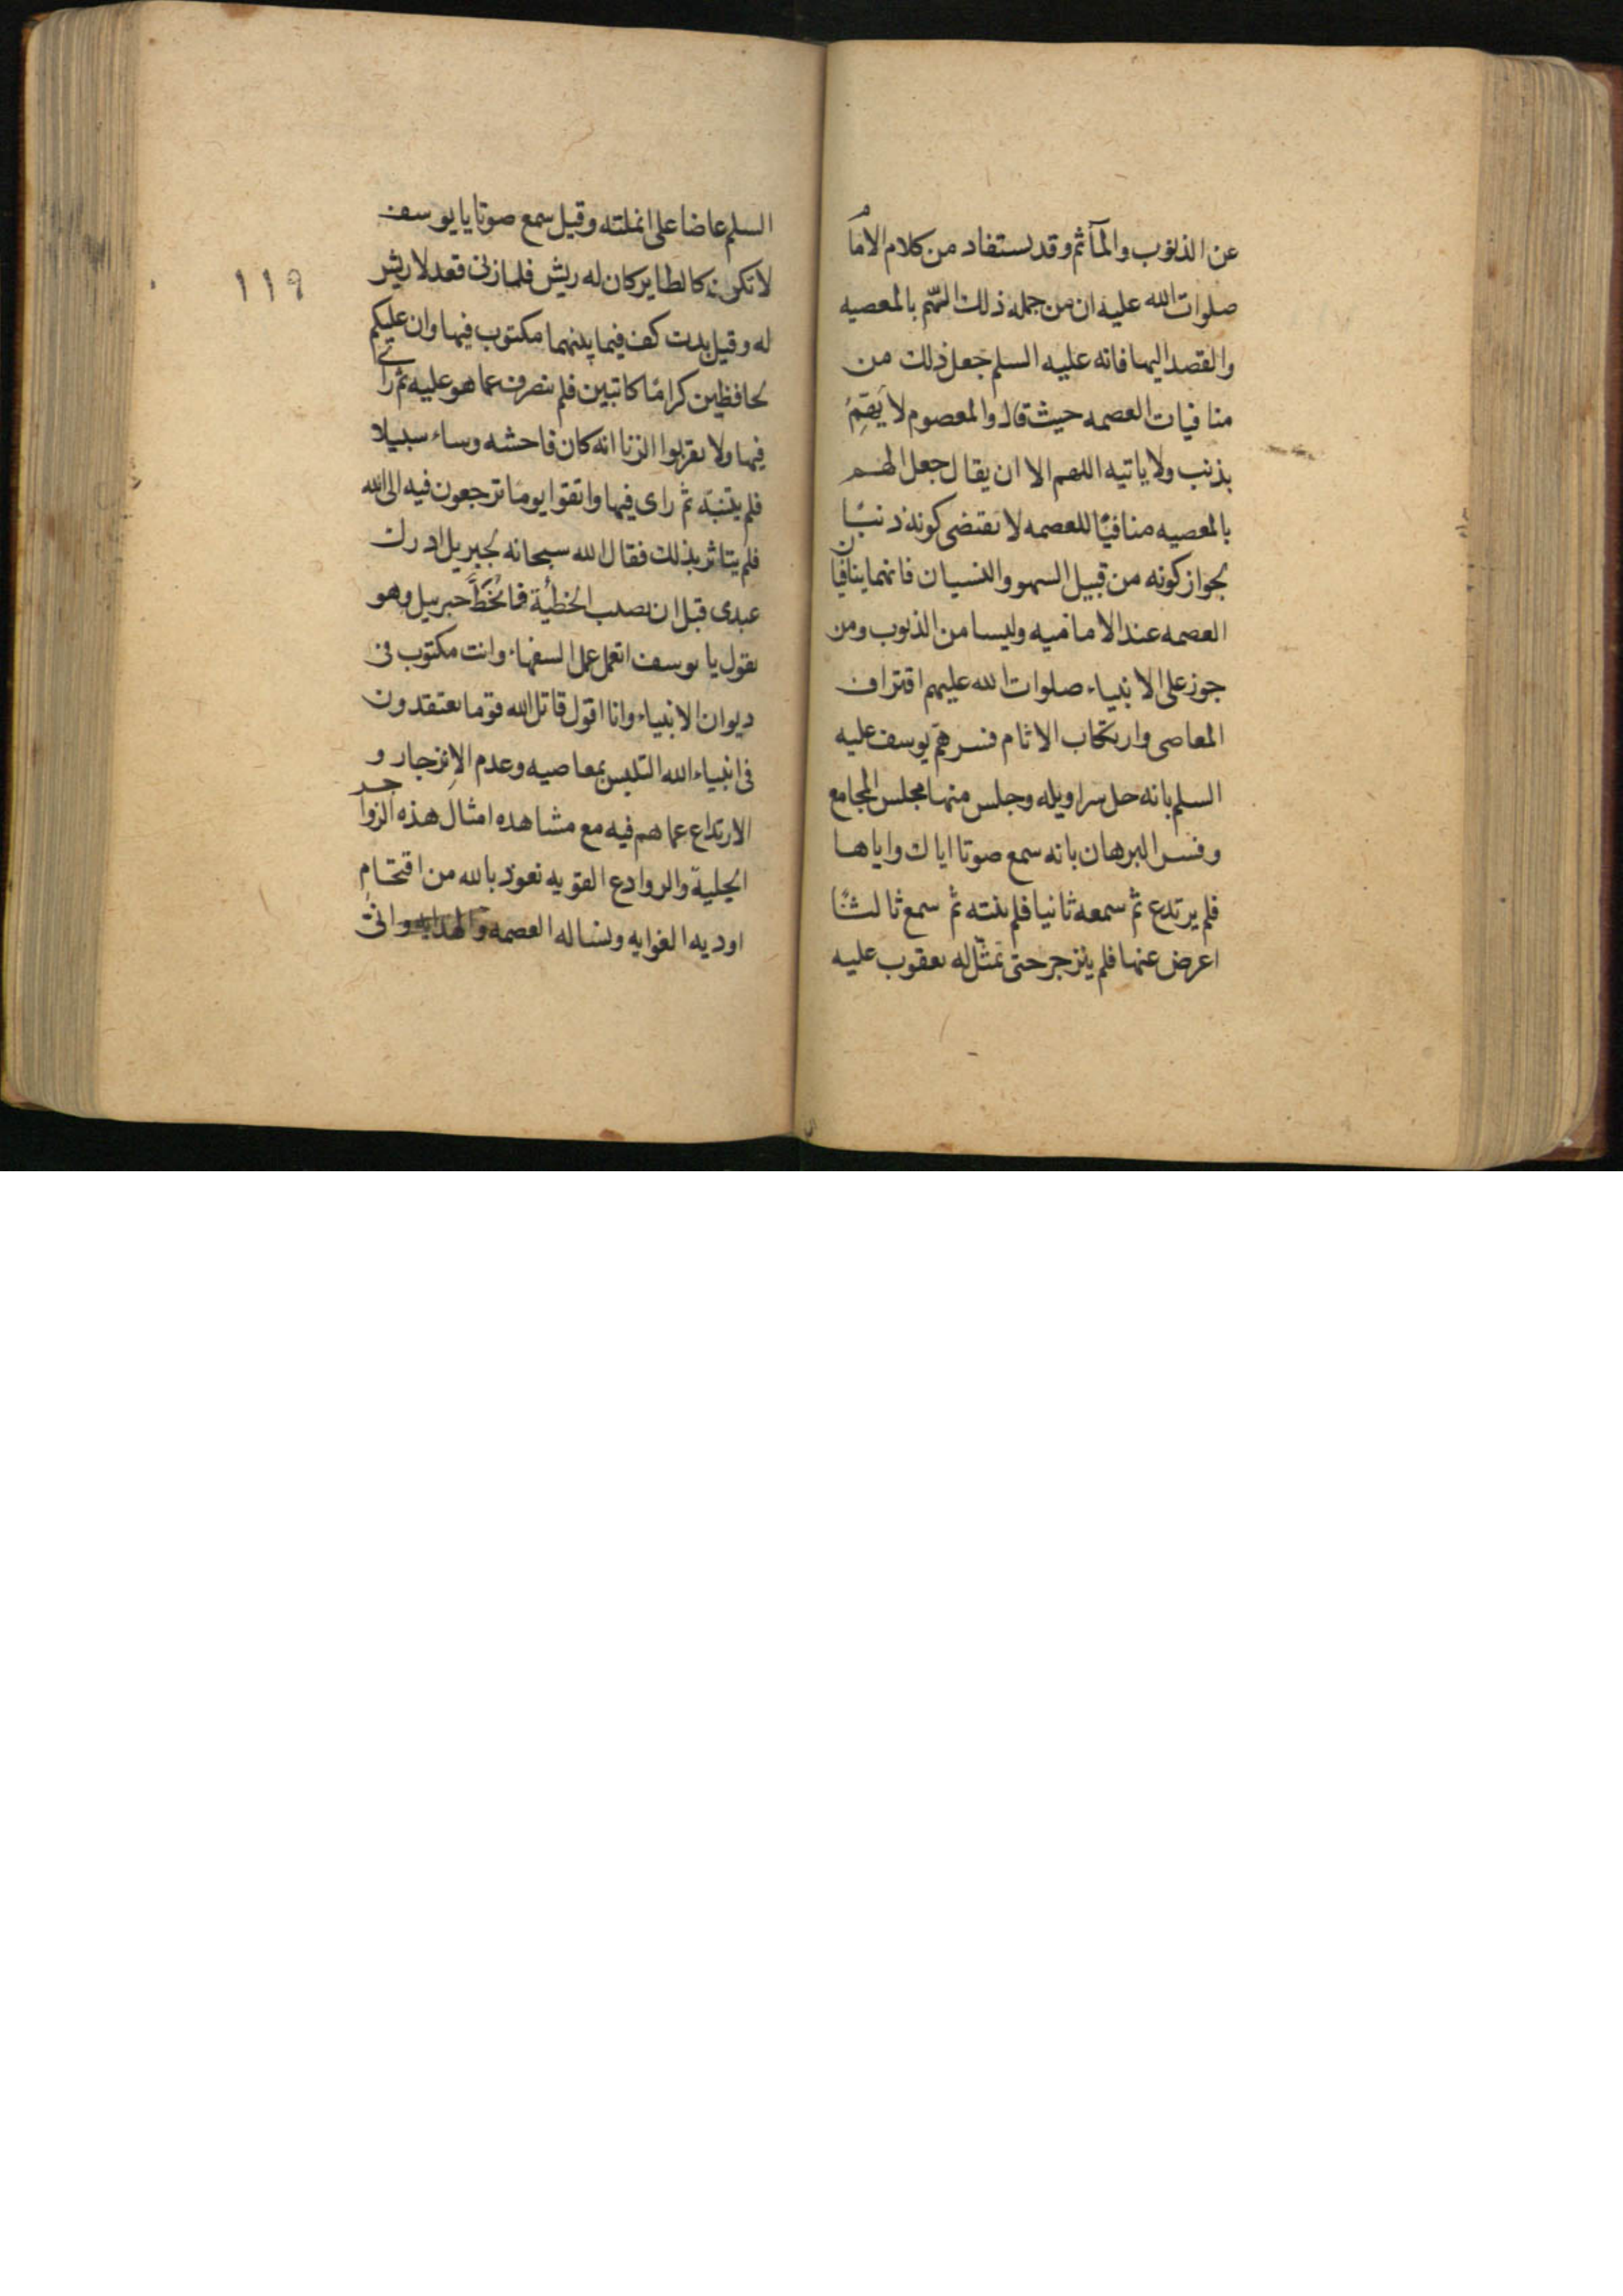 عن الذنوب والمآثم وقد يستفاد من كلام الامام
صلوات الله عليه ان من جمله ذلك الهّم بالمعصيه
والقصد اليها فانه عليه السلم جعل ذلك من
منافيات العصمه حيث قال والمعصوم لا يَهِمُّ
بذنب ولا ياتيه اللهم الا ان يقال جعل الهم
بالمعصيه منافيًا للعصمه لا يقتضى كونه ذنبًا
لجواز كونه من قبيل السهو والنسيان فانهما ينافيان
العصمه عند الاماميه وليسا من الذنوب ومن
جوز على الانبياء صلوات الله عليهم اقتراف
المعاصى وارتكاب الاثام فسر همّ يوسف عليه
السلم بانه حل سراويله وجلس منها مجلس المجامع
وفسر البرهان بانه سمع صوتا اياك واياها
فلم يرتدع ثم سمعه ثانيا فلم ينته ثم سمع ثالثًا
اعرض عنها فلم ينزجر حتى تمثّل له يعقوب عليه
السلم عاضا على انملته وقيل سمع صوتا يا يوسف
لا تكونن كالطاير كان له ريش فلما زنى قعد لا ريش
له وقيل بدت كف فيما بينهما مكتوب فيها وان عليكم
لحافظين كرامًا كاتبين فلم ينصرف عما هو عليه ثم راى
فيها ولا تقربوا الزنا انه كان فاحشه وساء سبيلا
فلم يتنبّه ثم راى فيها واتقوا يومًا ترجعون فيه الى الله
فلم يتاثر بذلك فقال الله سبحانه لجبريل ادرك
عبدى قبل ان يصيب الخطئَة فانحَطَّ جبرييل وهو
يقول يا يوسف اتعمل عمل السفهاء وانت مكتوب فى
ديوان الانبياء وانا اقول قاتل الله قومًا يعتقدون
فى انبياء الله التلبس بمعاصيه وعدم الاِنزجار و
الارتداع عما هم فيه مع مشاهده امثال هذه الزواجر
الجلية والروادع القويه نعوذ بالله من اقتحام
اوديه الغوايه ونساله العصمه والهدايه
١١٩